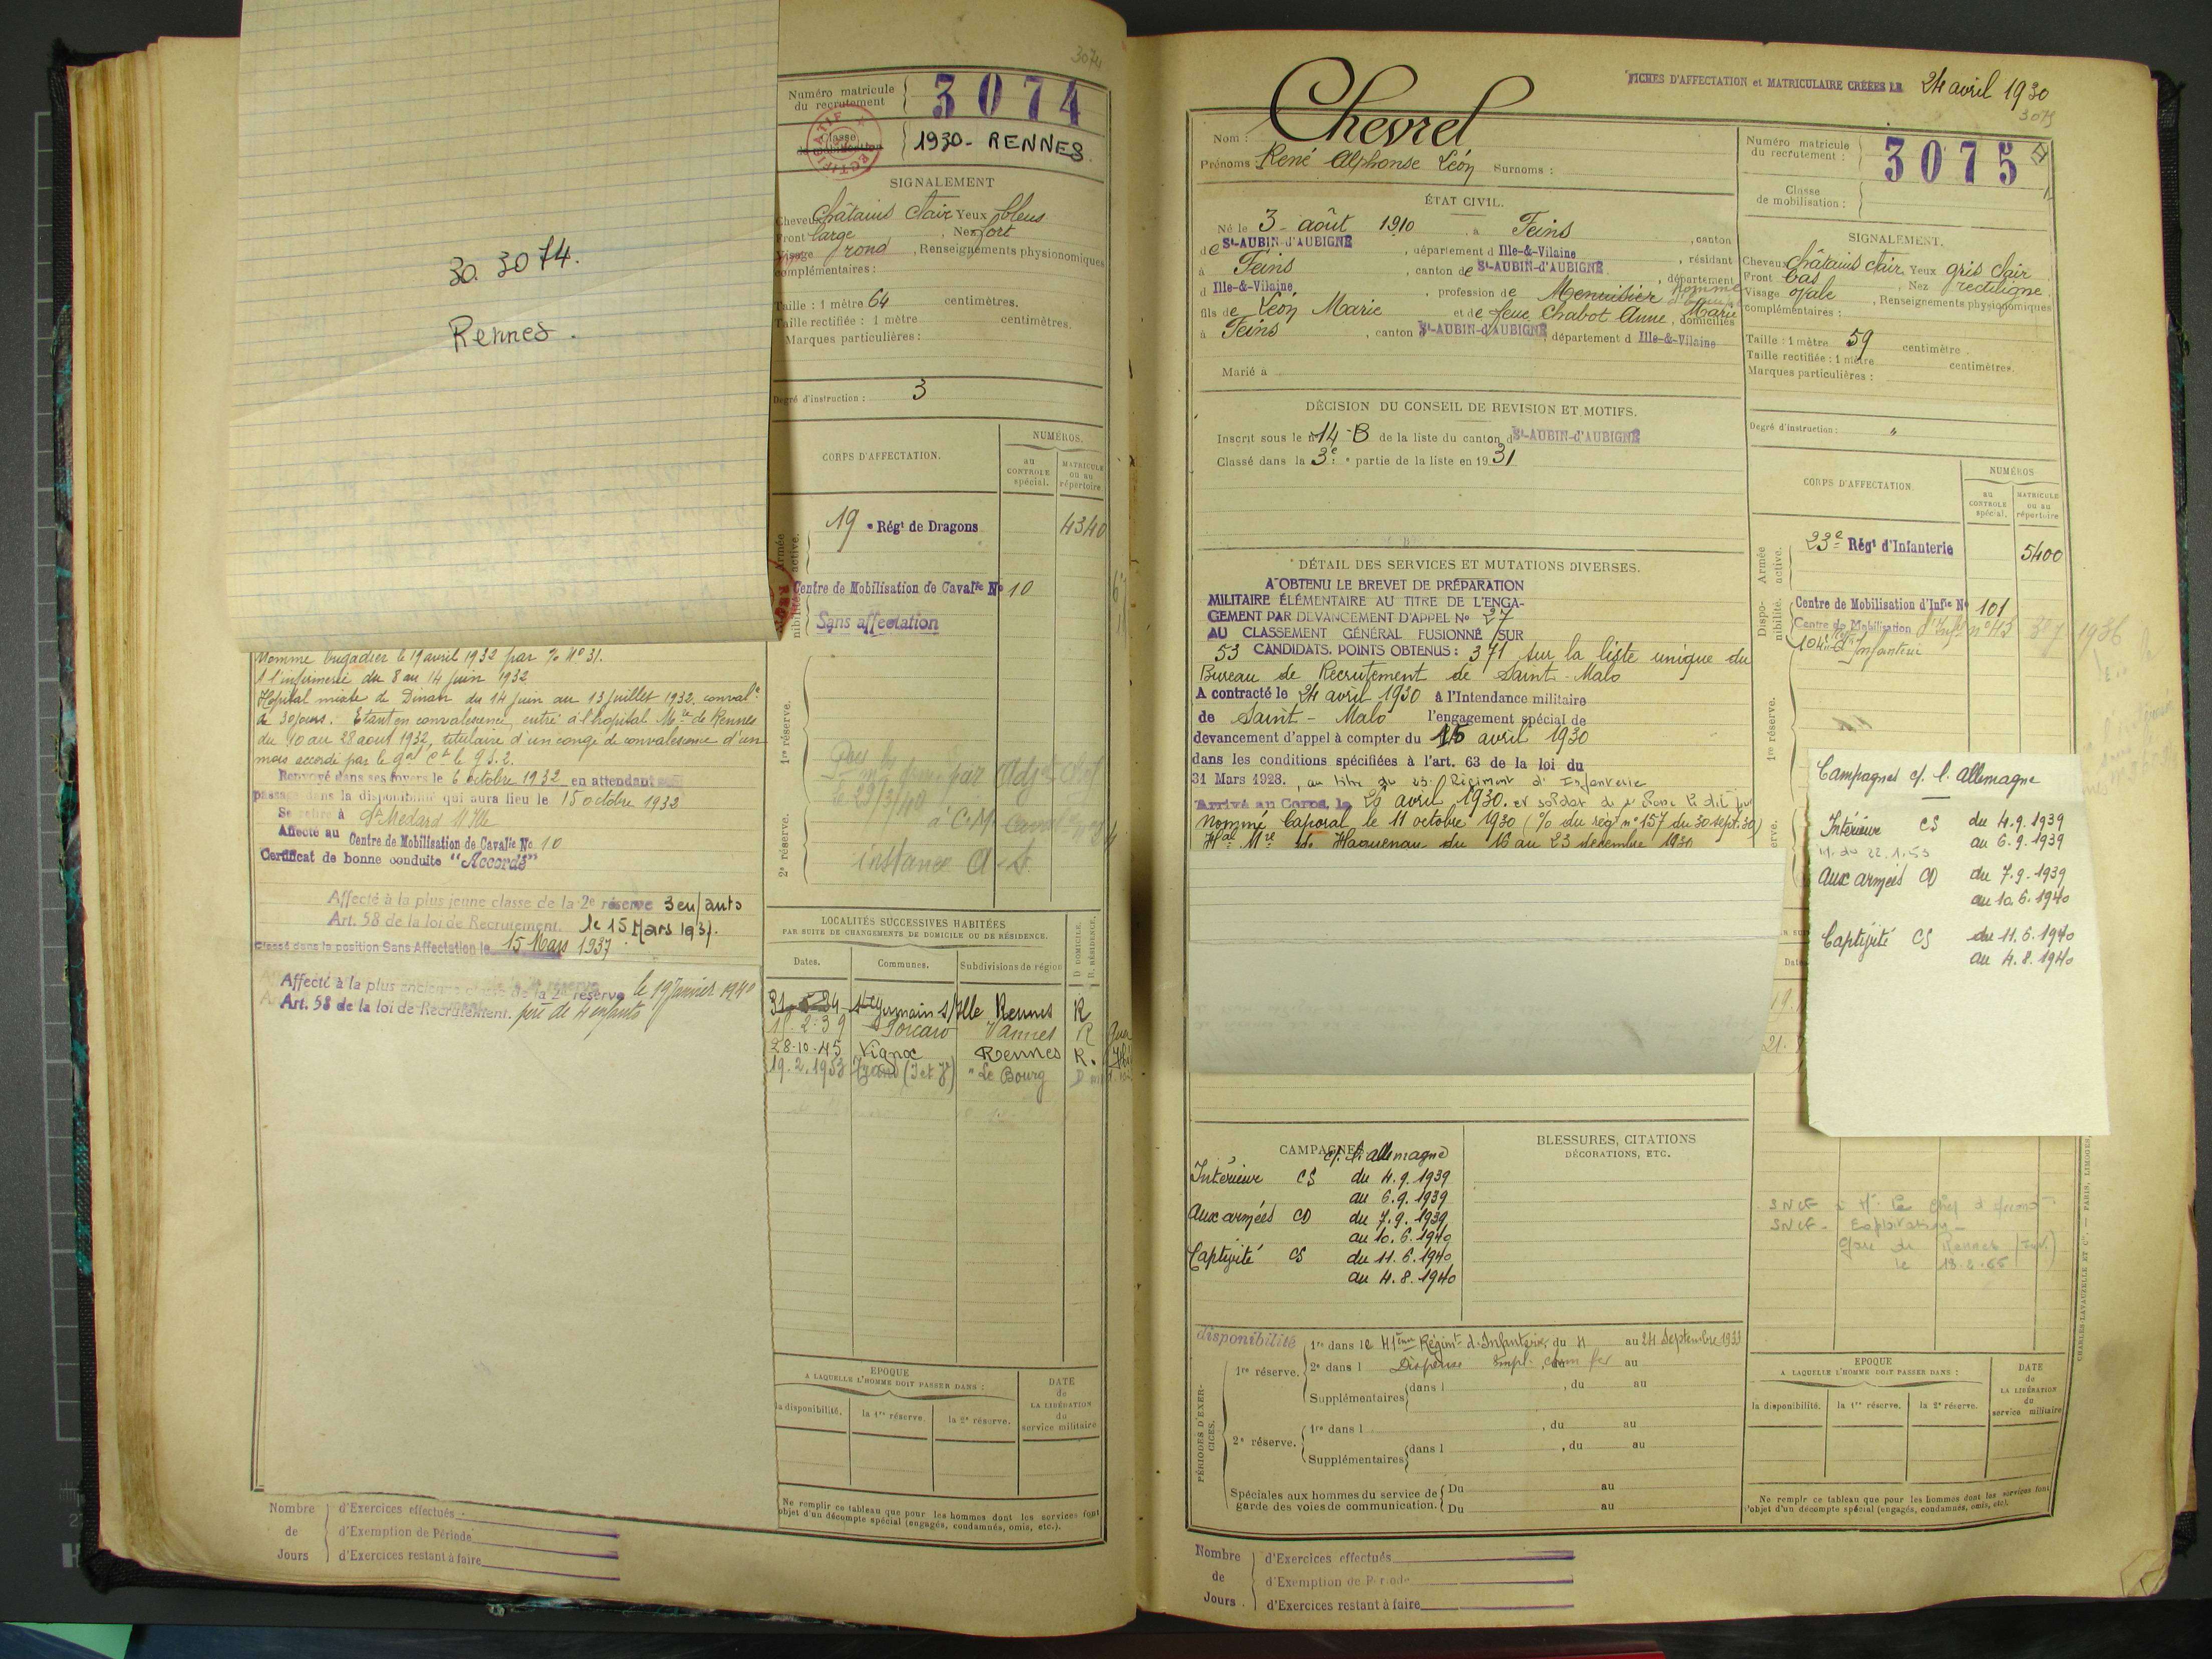 3074
30. 3074.
Rennes.
Numéro matricule
du recrutement
3074
Classe
de mobilisation
1930 - RENNES.
SIGNALEMENT
Cheveux châtains clair Yeux bleus
Front large, Nez fort
Visage rond, Renseignements physionomiques
complémentaires :
Taille : 1 mètre 64 centimètres.
Taille rectifiée : 1 mètre centimètres.
Marques particulières :
Degré d'instruction : 3
CORPS D'AFFECTATION.
NUMÉROS.
au
CONTROLE
spécial.
MATRICULE
ou au
répertoire
Armée
active.
19e Régt de Dragons 4340
Centre de Mobilisation de Cavalie No 10
Sans affectation
Nommé brigadier le 19 avril 1932 par % No 31.
A l'infirmerie du 8 au 14 juin 1932
Hôpital mixte de Dinan du 14 juin au 13 juillet 1932. convalce
de 30 jours. Etant en convalescence, entré à l'hopital Mre de Rennes
du 10 au 28 aout 1932, titulaire d'un congé de convalescence d'un
mois accordé par le Gal Ct le
Renvoyé dans ses foyers le 6 octobre 1932 en attendant
passage dans la disponibilité qui aura lieu le 15 octobre 1932
Se retire à St Médard s/ Ille
Affecté au Centre de Mobilisation de Cavalie No 10
Certificat de bonne conduite "Accordé"
Affecté à la plus jeune classe de la 2e réserve 3 enfants
Art. 58 de la loi de Recrutement. le 15 Mars 1937.
Classé dans la position Sans Affectation le 15 Mars 1937
Affecté à la plus ancienne classe de la 2e réserve le 19 Janvier 1940
Art. 58 de la loi de Recrutement. père de 4 enfants
1re réserve.
2e réserve.
LOCALITÉS SUCCESSIVES HABITÉES
PAR SUITE DE CHANGEMENTS DE DOMICILE OU DE RÉSIDENCE.
D. DOMICILE.
R. RÉSIDENCE.
Dates.
Communes.
Subdivisions de région
St Germain s/Ille Rennes R
2.39 Porcaro Vannes R
28-10-45 Vignoc Rennes R.
19.2.1953 (I et V) "Le Bourg
EPOQUE
A LAQUELLE L'HOMME DOIT PASSER DANS :
la disponibilité.
la 1re réserve.
la 2e réserve.
DATE
de
LA LIBÉRATION
du
service militaire
Ne remplir ce tableau que pour les hommes dont les services font
objet d'un décompte spécial (engagés, condamnés, omis, etc.).
Nombre
de
Jours
d'Exercices effectués
d'Exemption de Période
d'Exercices restant à faire
FICHES D'AFFECTATION et MATRICULAIRE CRÉÉES LE 24 avril 1930
3075
Nom : Chevrel
Prénoms : René Alphonse Léon Surnoms :
Numéro matricule
du recrutement :
3075
Classe
de mobilisation :
ÉTAT CIVIL.
Né le 3 août 1910, à Feins, canton
de St-AUBIN-d'AUBIGNÉ, département d Ille-&-Vilaine, résidant
à Feins, canton de St-AUBIN-d'AUBIGNÉ, département
d Ille-&-Vilaine, profession de Menuisier
fils de Léon Marie et de feue Chabot Anne Marie, domiciliés
à Feins, canton St-AUBIN-d'AUBIGNÉ, département d Ille-&-Vilaine
Marié à
SIGNALEMENT.
Cheveux châtains clair, Yeux gris clair
Front bas, Nez rectiligne
Visage ovale, Renseignements physionomiques
complémentaires :
Taille : 1 mètre 59 centimètre
Taille rectifiée : 1 mètre centimètres.
Marques particulières :
Degré d'instruction : "
DÉCISION DU CONSEIL DE REVISION ET MOTIFS.
Inscrit sous le n° 14-B de la liste du canton d St-AUBIN-d'AUBIGNÉ
Classé dans la 3e partie de la liste en 1931
CORPS D'AFFECTATION.
NUMÉROS
au
CONTROLE
spécial.
MATRICULE
ou au
répertoire
Armée
active.
23e Régt d'Infanterie 5400
Dispo-
nibilité.
Centre de Mobilisation d'Infie No 101
Centre de Mobilisation d'Infie n° 45
1re réserve.
DÉTAIL DES SERVICES ET MUTATIONS DIVERSES.
A OBTENU LE BREVET DE PRÉPARATION
MILITAIRE ÉLÉMENTAIRE AU TITRE DE L'ENGA-
GEMENT PAR DEVANCEMENT D'APPEL No 27
AU CLASSEMENT GÉNÉRAL FUSIONNÉ SUR
53 CANDIDATS. POINTS OBTENUS : 371 sur la liste unique du
Bureau de Recrutement de Saint-Malo
A contracté le 24 avril 1930 à l'Intendance militaire
de Saint-Malo l'engagement spécial de
devancement d'appel à compter du 15 avril 1930
dans les conditions spécifiées à l'art. 63 de la loi du
31 Mars 1928., au titre du 23e Régiment d'Infanterie
Arrivé au Corps, le avril 1930. et soldat de 2e classe le dit jour
Nommé Caporal le 11 octobre 1930 (% du rég n° 157 du 30 sept. 30)
Hal Mre de Haguenau du 16 au 23 décembre 1930
Campagnes c/. l'allemagne
Intérieur CS du 4.9.1939
au 6.9.1939
Aux armées CD du 7.9.1939
au 10.6.1940
Captivité CS du 11.6.1940
au 4.8.1940
CAMPAGNES
c/. l'allemagne
Intérieur CS du 4.9.1939
au 6.9.1939
Aux armées CD du 7.9.1939
au 10.6.1940
Captivité CS du 11.6.1940
au 4.8.1940
BLESSURES, CITATIONS
DÉCORATIONS, ETC.
PÉRIODES D'EXER-
CICES.
disponibilité 1re dans le 41ème Régimt d'Infanterie, du 4 au 24 Septembre 1933
1re réserve. 2e dans l Dispensé Empl. chem fer au
Supplémentaires dans l, du au
2e réserve. 1re dans l, du au
Supplémentaires dans l, du au
Spéciales aux hommes du service de
garde des voies de communication.
Du au
Du au
SNCF
Gare de Rennes
EPOQUE
A LAQUELLE L'HOMME DOIT PASSER DANS :
la disponibilité.
la 1re réserve.
la 2e réserve.
DATE
de
LA LIBÉRATION
du
service militaire
Ne remplr ce tableau que pour les hommes dont les services font
l'objet d'un décompte spécial (engagés, condamnés, omis, etc).
CHARLES-LAVAUZELLE ET Cie. — PARIS, LIMOGES,
Nombre
de
Jours.
d'Exercices effectués
d'Exemption de Période
d'Exercices restant à faire